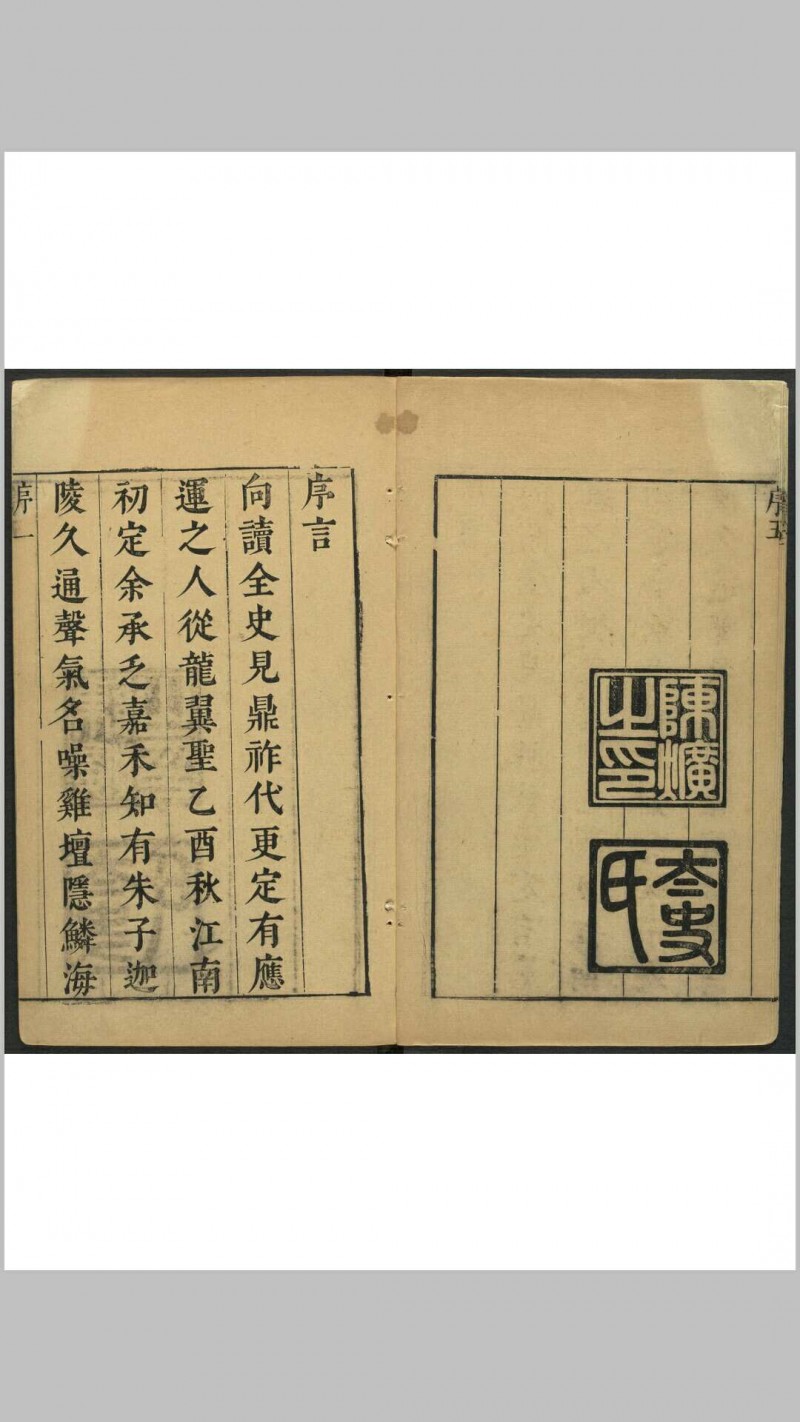 序五
陳爌
之印
太史
氏
序言
向讀全史見鼎祚代更定有應
運之人從龍翼聖乙酉秋江南
初定余承乏嘉禾知有朱子迦
陵久通聲氣名噪雞壇隱鱗海
序一